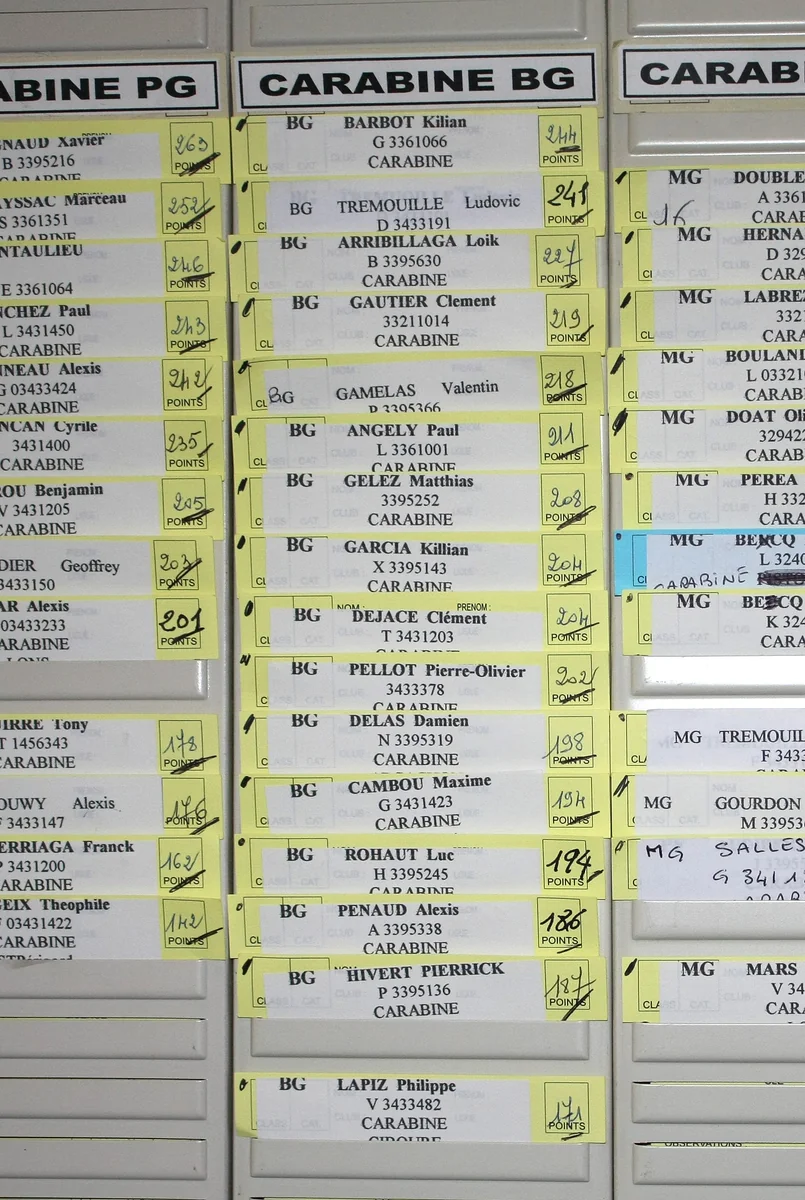 ABINE PG
GNAUD Xavier
B 3395216
263
POINTS
AYSSAC Marceau
S 3361351
252
POINTS
NTAULIEU
E 3361064
246
NCHEZ Paul
L 3431450
CARABINE
243
POINTS
NNEAU Alexis
G 03433424
CARABINE
242
POINTS
NCAN Cyrile
3431400
CARABINE
235
POINTS
ROU Benjamin
V 3431205
CARABINE
205
POINTS
DIER Geoffrey
3433150
203
POINTS
AR Alexis
03433233
ARABINE
201
POINTS
UIRRE Tony
T 1456343
CARABINE
178
POINTS
OUWY Alexis
F 3433147
176
POINTS
ERRIAGA Franck
P 3431200
CARABINE
162
POINTS
GEIX Theophile
F 03431422
CARABINE
142
POINTS
CARABINE BG
BG BARBOT Kilian
G 3361066
CARABINE
244
POINTS
BG TREMOUILLE Ludovic
D 3433191
241
POINTS
BG ARRIBILLAGA Loik
B 3395630
CARABINE
227
POINTS
BG GAUTIER Clement
33211014
CARABINE
219
POINTS
BG GAMELAS Valentin
P 3395366
218
POINTS
BG ANGELY Paul
L 3361001
CARABINE
211
POINTS
BG GELEZ Matthias
3395252
CARABINE
208
POINTS
BG GARCIA Killian
X 3395143
CARABINE
204
POINTS
NOM : PRENOM :
BG DEJACE Clément
T 3431203
204
POINTS
BG PELLOT Pierre-Olivier
3433378
CARABINE
202
POINTS
BG DELAS Damien
N 3395319
CARABINE
198
POINTS
BG CAMBOU Maxime
G 3431423
CARABINE
194
POINTS
BG ROHAUT Luc
H 3395245
CARABINE
194
POINTS
BG PENAUD Alexis
A 3395338
CARABINE
POINTS
BG HIVERT PIERRICK
P 3395136
CARABINE
187
POINTS
BG LAPIZ Philippe
V 3433482
CARABINE
CIBOURE
171
POINTS
CARABI
MG DOUBLE
A 3361
CARAB
16
MG HERNA
D 329
CARA
MG LABREZ
3321
CARA
MG BOULAN
L 03321
CARAB
MG DOAT Oli
329422
CARAB
MG PEREA
H 332
CARA
MG BERCQ
L 3240
CARABINE
MG BERCQ
K 324
CARA
MG TREMOUIL
F 3433
MG GOURDON
M 33953
MG SALLES
G 3411
MG MARS
V 34
CARA
OBSERVATIONS